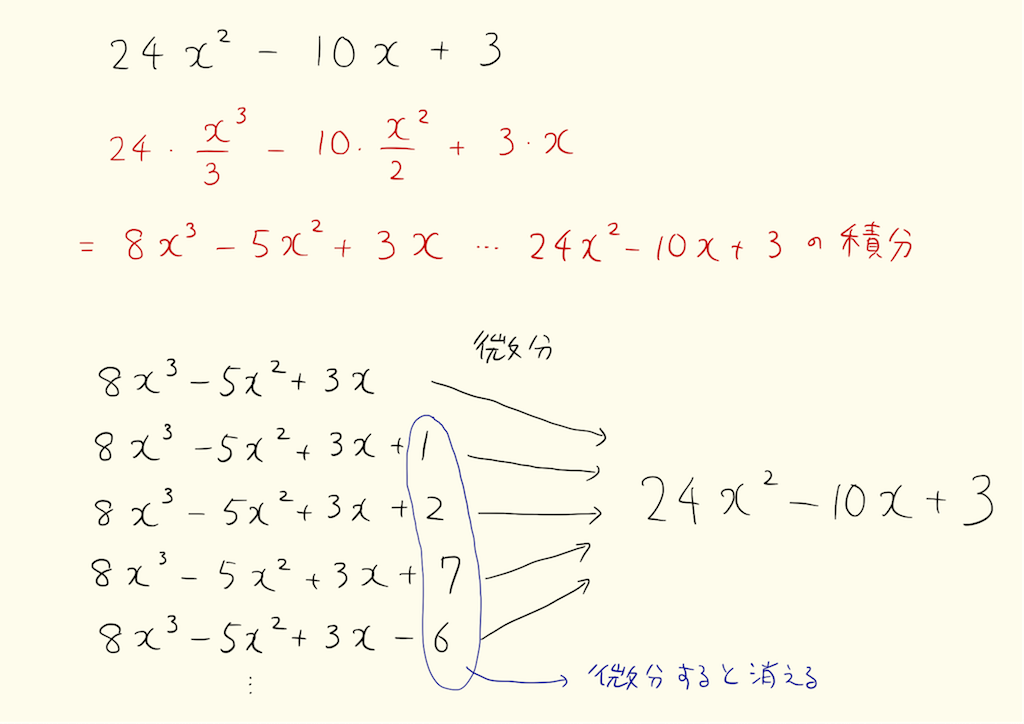 24x² - 10x + 3
24・x³/3 - 10・x²/2 + 3・x
= 8x³ - 5x² + 3x … 24x² - 10x + 3 の積分
微分
8x³ - 5x² + 3x
8x³ - 5x² + 3x + 1
8x³ - 5x² + 3x + 2
24x² - 10x + 3
8x³ - 5x² + 3x + 7
8x³ - 5x² + 3x - 6
微分すると消える
⋮